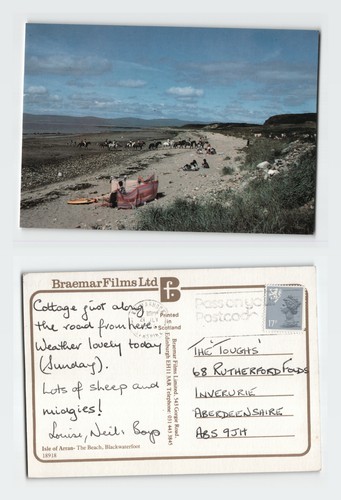 Braemar Films Ltd
Cottage just along
the road from here.
Weather lovely today
(Sunday).
Lots of sheep and
midgies!
Louise, Neil & Boys
Isle of Arran- The Beach, Blackwaterfoot
18918
Printed in Scotland
Braemar Films Limited, 543 Gorgie Road
Edinburgh EH11 3AR Telephone: 031 443 3845
Postcode
17P
THE 'TOUGHS'
68 RUTHERFORD FOLDS
INVERURIE
ABERDEENSHIRE
AB5 9JH